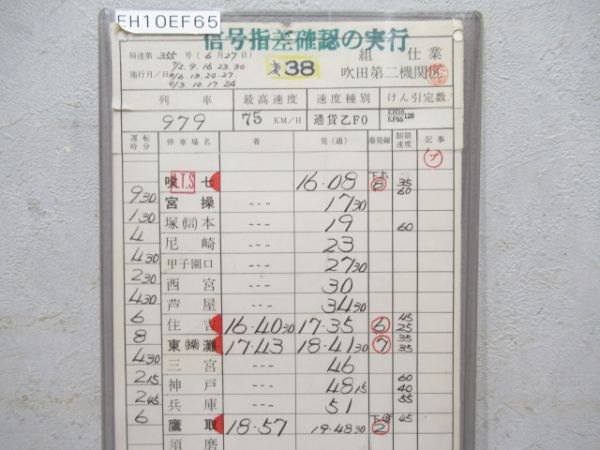 EH10EF65
信号指差確認の実行
局達第 355 号 ( 6月27日)
7/2.9.16.23.30
施行月/日 8/6.13.20.27
9/3.10.17.24
38
組 仕業
吹田第二機関区
列車 最高速度 速度種別 けん引定数
979 75 KM/H 通貨乙F0 EH10 EF65 120
運転時分 停車場名 着 発(通) 着発線 制限速度 記事
A.T.S 吹 七 16.08 8 35 60
930 宮操 --- 1730
130 塚(信)本 --- 19 60
4 尼崎 --- 23
430 甲子園口 --- 2730
230 西宮 --- 30
430 芦屋 --- 3430
6 住吉 16.4030 17.35 6 45 25
8 東(操)灘 17.43 18.4130 7 35 35
430 三宮 --- 46
215 神戸 --- 4815 60 40
245 兵庫 --- 51 55
6 鷹取 18.57 19.4830 2 45
須磨